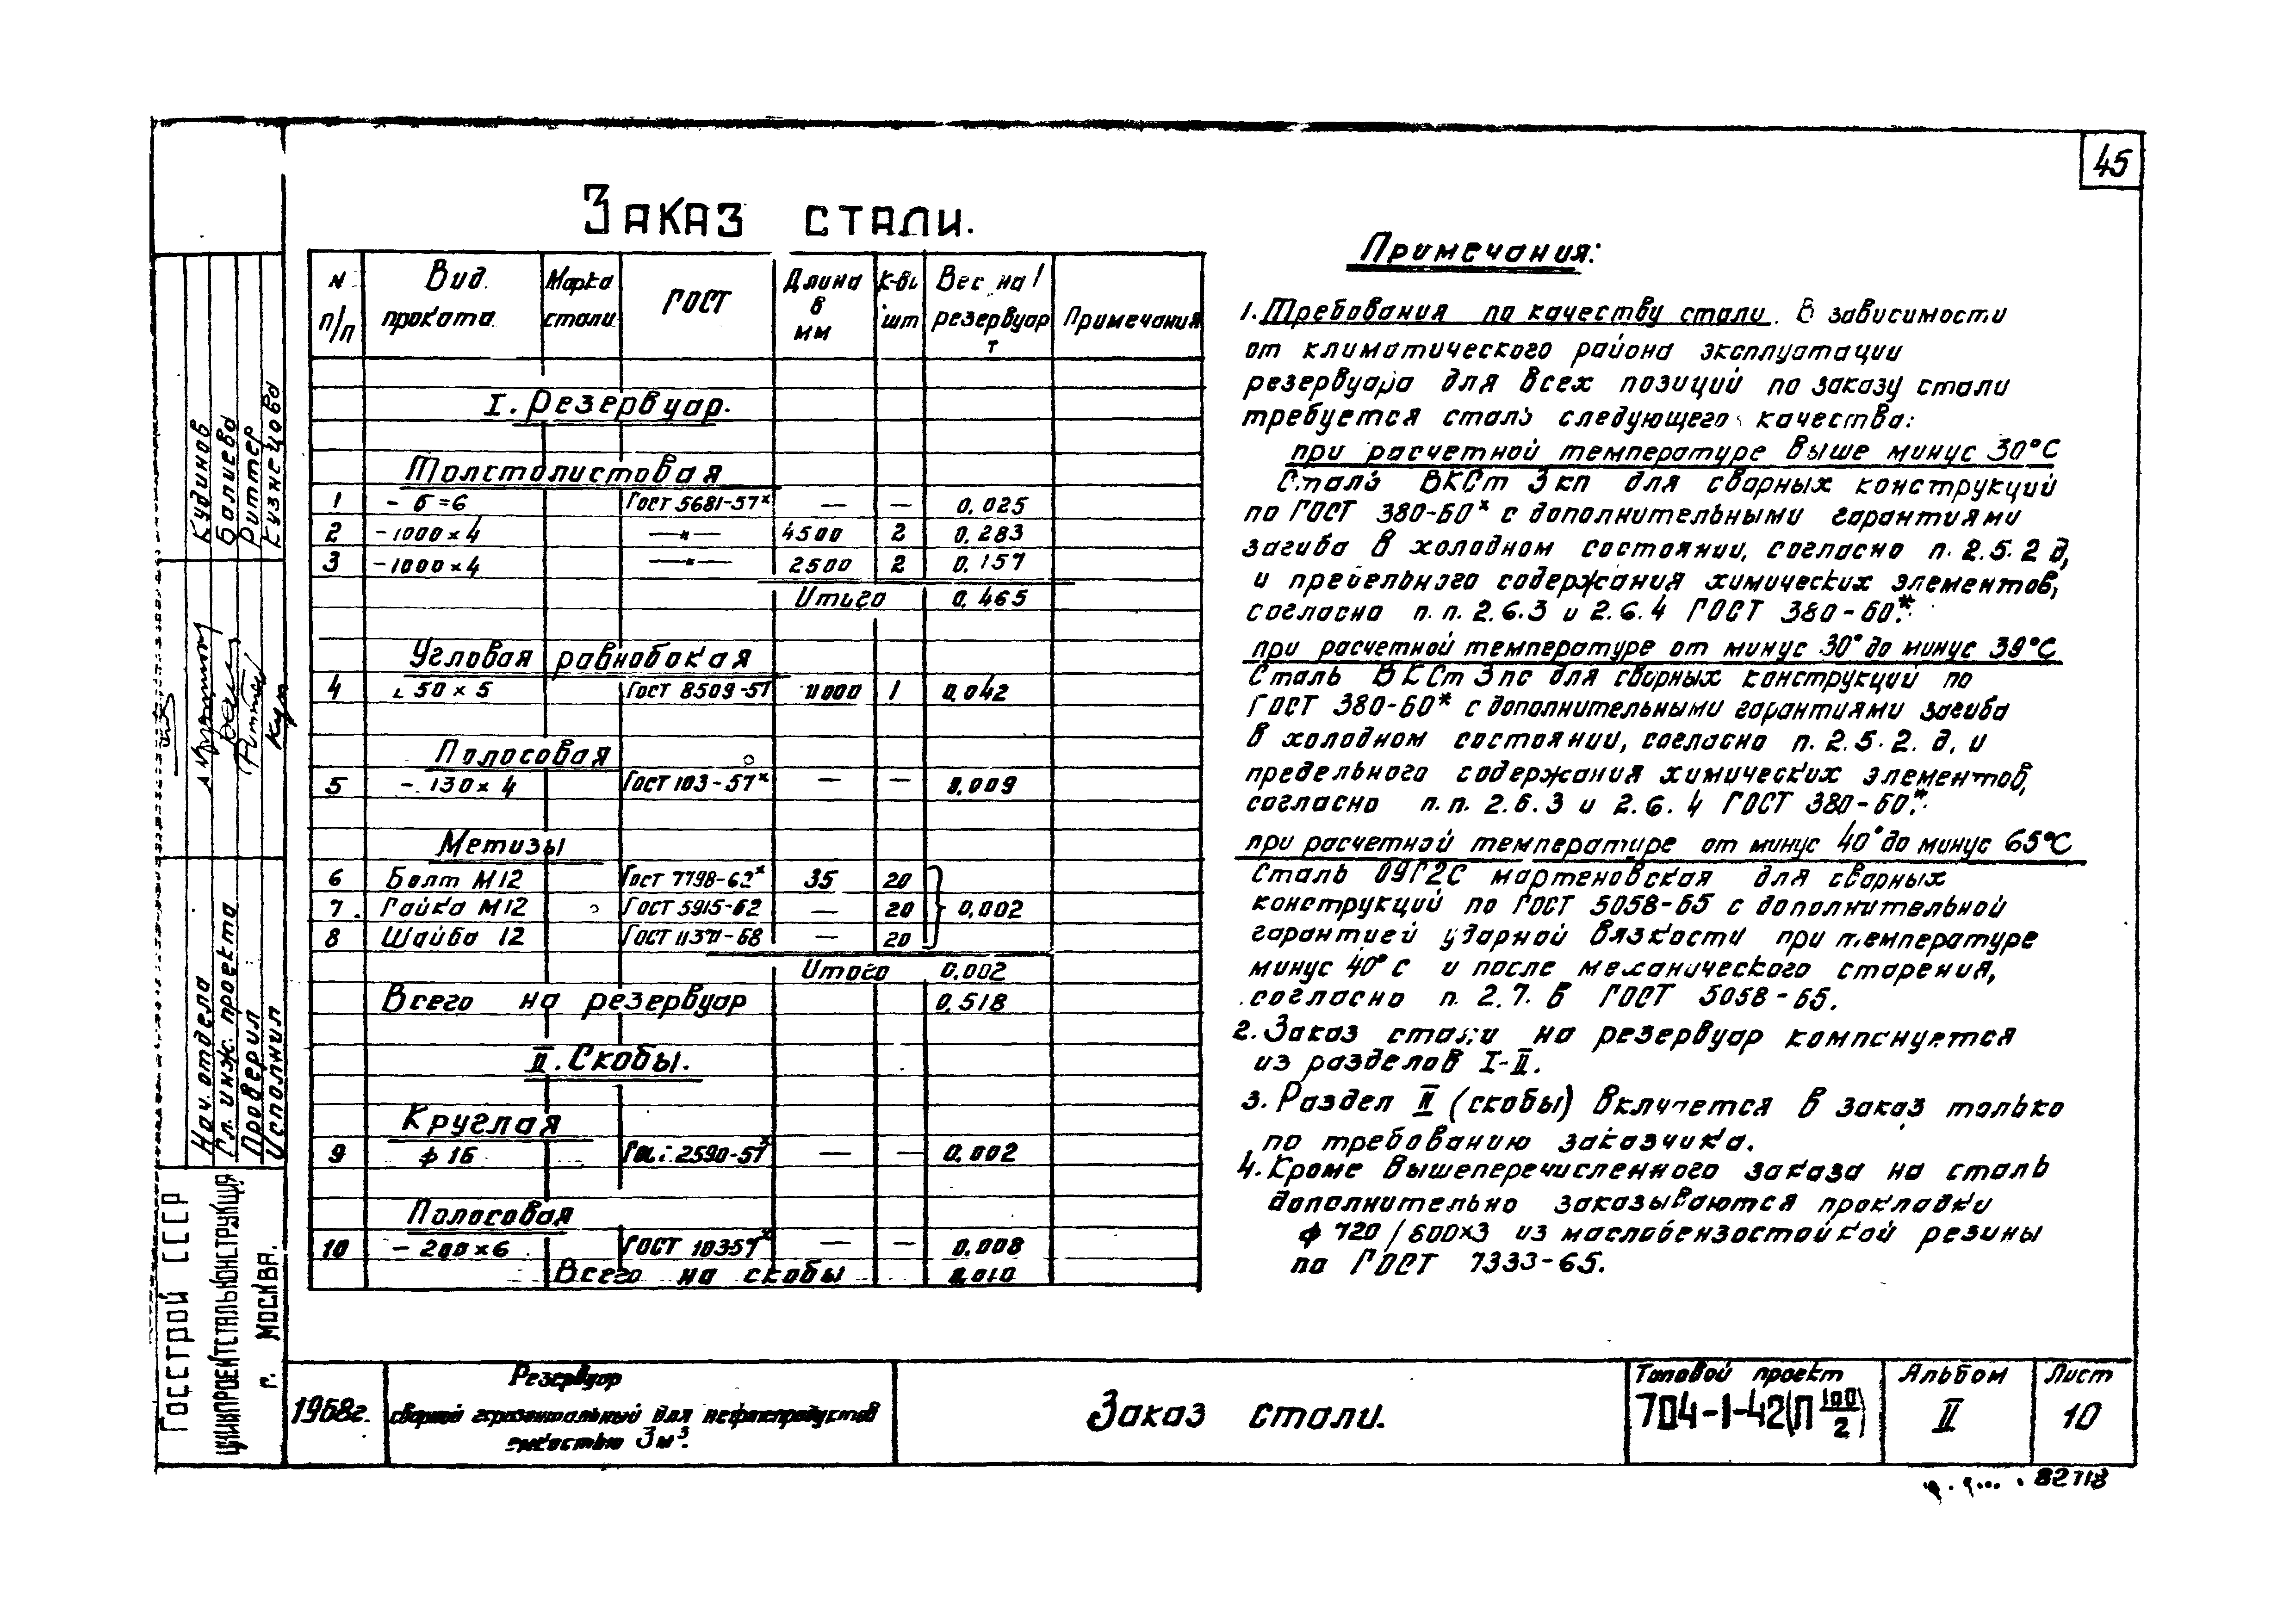 45
Заказ стали.
N п/п | Вид проката | Марка стали | ГОСТ | Длина в мм | К-во шт | Вес на 1 резервуар т | Примечания
I. Резервуар.
Толстолистовая
1 | - б=6 | ГОСТ 5681-57* | — | — | 0.025
2 | -1000×4 | —"— | 4500 | 2 | 0.283
3 | -1000×4 | —"— | 2500 | 2 | 0.157
Итого 0.465
Угловая равнобокая
4 | ∟50×5 | ГОСТ 8509-57 | 11000 | 1 | 0.042
Полосовая
5 | -130×4 | ГОСТ 103-57* | — | — | 0.009
Метизы
6 | Болт М12 | ГОСТ 7798-62* | 35 | 20
7 | Гайка М12 | ГОСТ 5915-62 | — | 20 | 0,002
8 | Шайба 12 | ГОСТ 11371-68 | — | 20
Итого 0,002
Всего на резервуар 0,518
II. Скобы.
Круглая
9 | ф 16 | 2590-57* | — | — | 0.002
Полосовая
10 | -200×6 | ГОСТ 10357* | — | — | 0.008
Всего на скобы 0,010
Примечания:
1. Требования по качеству стали. В зависимости
от климатического района эксплуатации
резервуара для всех позиций по заказу стали
требуется сталь следующего качества:
при расчетной температуре выше минус 30°С
Сталь ВКСт 3кп для сварных конструкций
по ГОСТ 380-60* с дополнительными гарантиями
загиба в холодном состоянии, согласно п. 2.5.2 д,
и предельного содержания химических элементов,
согласно п.п. 2.6.3 и 2.6.4 ГОСТ 380-60*.
при расчетной температуре от минус 30° до минус 39°С
Сталь ВКСт 3пс для сварных конструкций по
ГОСТ 380-60* с дополнительными гарантиями загиба
в холодном состоянии, согласно п. 2.5.2. д, и
предельного содержания химических элементов,
согласно п.п. 2.6.3 и 2.6.4 ГОСТ 380-60*.
при расчетной температуре от минус 40° до минус 65°С
Сталь 09Г2С мартеновская для сварных
конструкций по ГОСТ 5058-65 с дополнительной
гарантией ударной вязкости при температуре
минус 40°С и после механического старения,
согласно п. 2.7. в ГОСТ 5058-65.
2. Заказ стали на резервуар компонуется
из разделов I-II.
3. Раздел II (скобы) включается в заказ только
по требованию заказчика.
4. Кроме вышеперечисленного заказа на сталь
дополнительно заказываются прокладки
ф 720/600×3 из маслобензостойкой резины
по ГОСТ 7333-65.
Нач. отдела Кудинов
Гл. инж. проекта Балиева
Проверил Риттер
Исполнил Кузнецова
Госстрой СССР
ЦНИИПРОЕКТСТАЛЬКОНСТРУКЦИЯ
г. Москва.
1968г.
Резервуар
сварной горизонтальный для нефтепродуктов
емкостью 3м³.
Заказ стали.
Типовой проект
704-1-42(П 100/2)
Альбом
II
Лист
10
82718